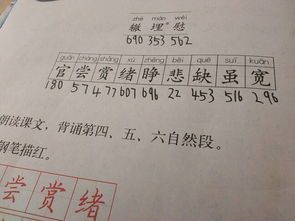 zhé mán wèi
辙 埋 慰
690 353 562
guān cháng shǎng xù zhēng bēi quē suī kuān
官 尝 赏 绪 睁 悲 缺 虽 宽
180 57 477 607 696 22 453 516 296
朗读课文，背诵第四、五、六自然段。
钢笔描红。
尝 赏 绪